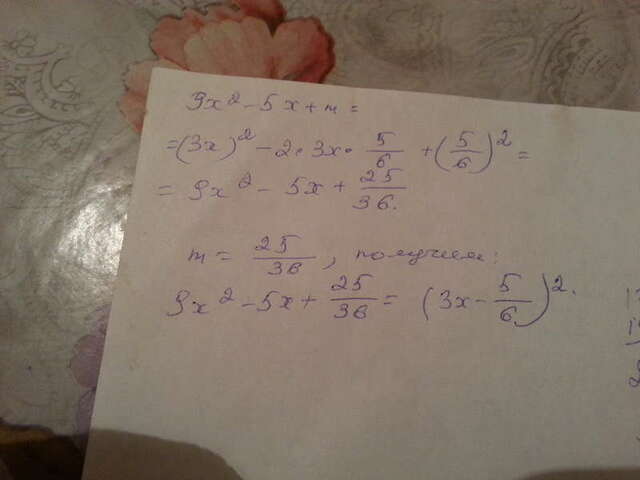 9x² - 5x + m =
= (3x)² - 2 · 3x · 5/6 + (5/6)² =
= 9x² - 5x + 25/36.
m = 25/36, получим:
9x² - 5x + 25/36 = (3x - 5/6)².